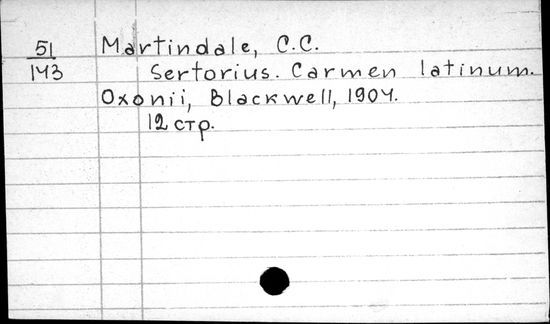 51 Martindale, C.C.
143 Sertorius. Carmen latinum.
Oxonii, Blackwell, 1904.
12 стр.